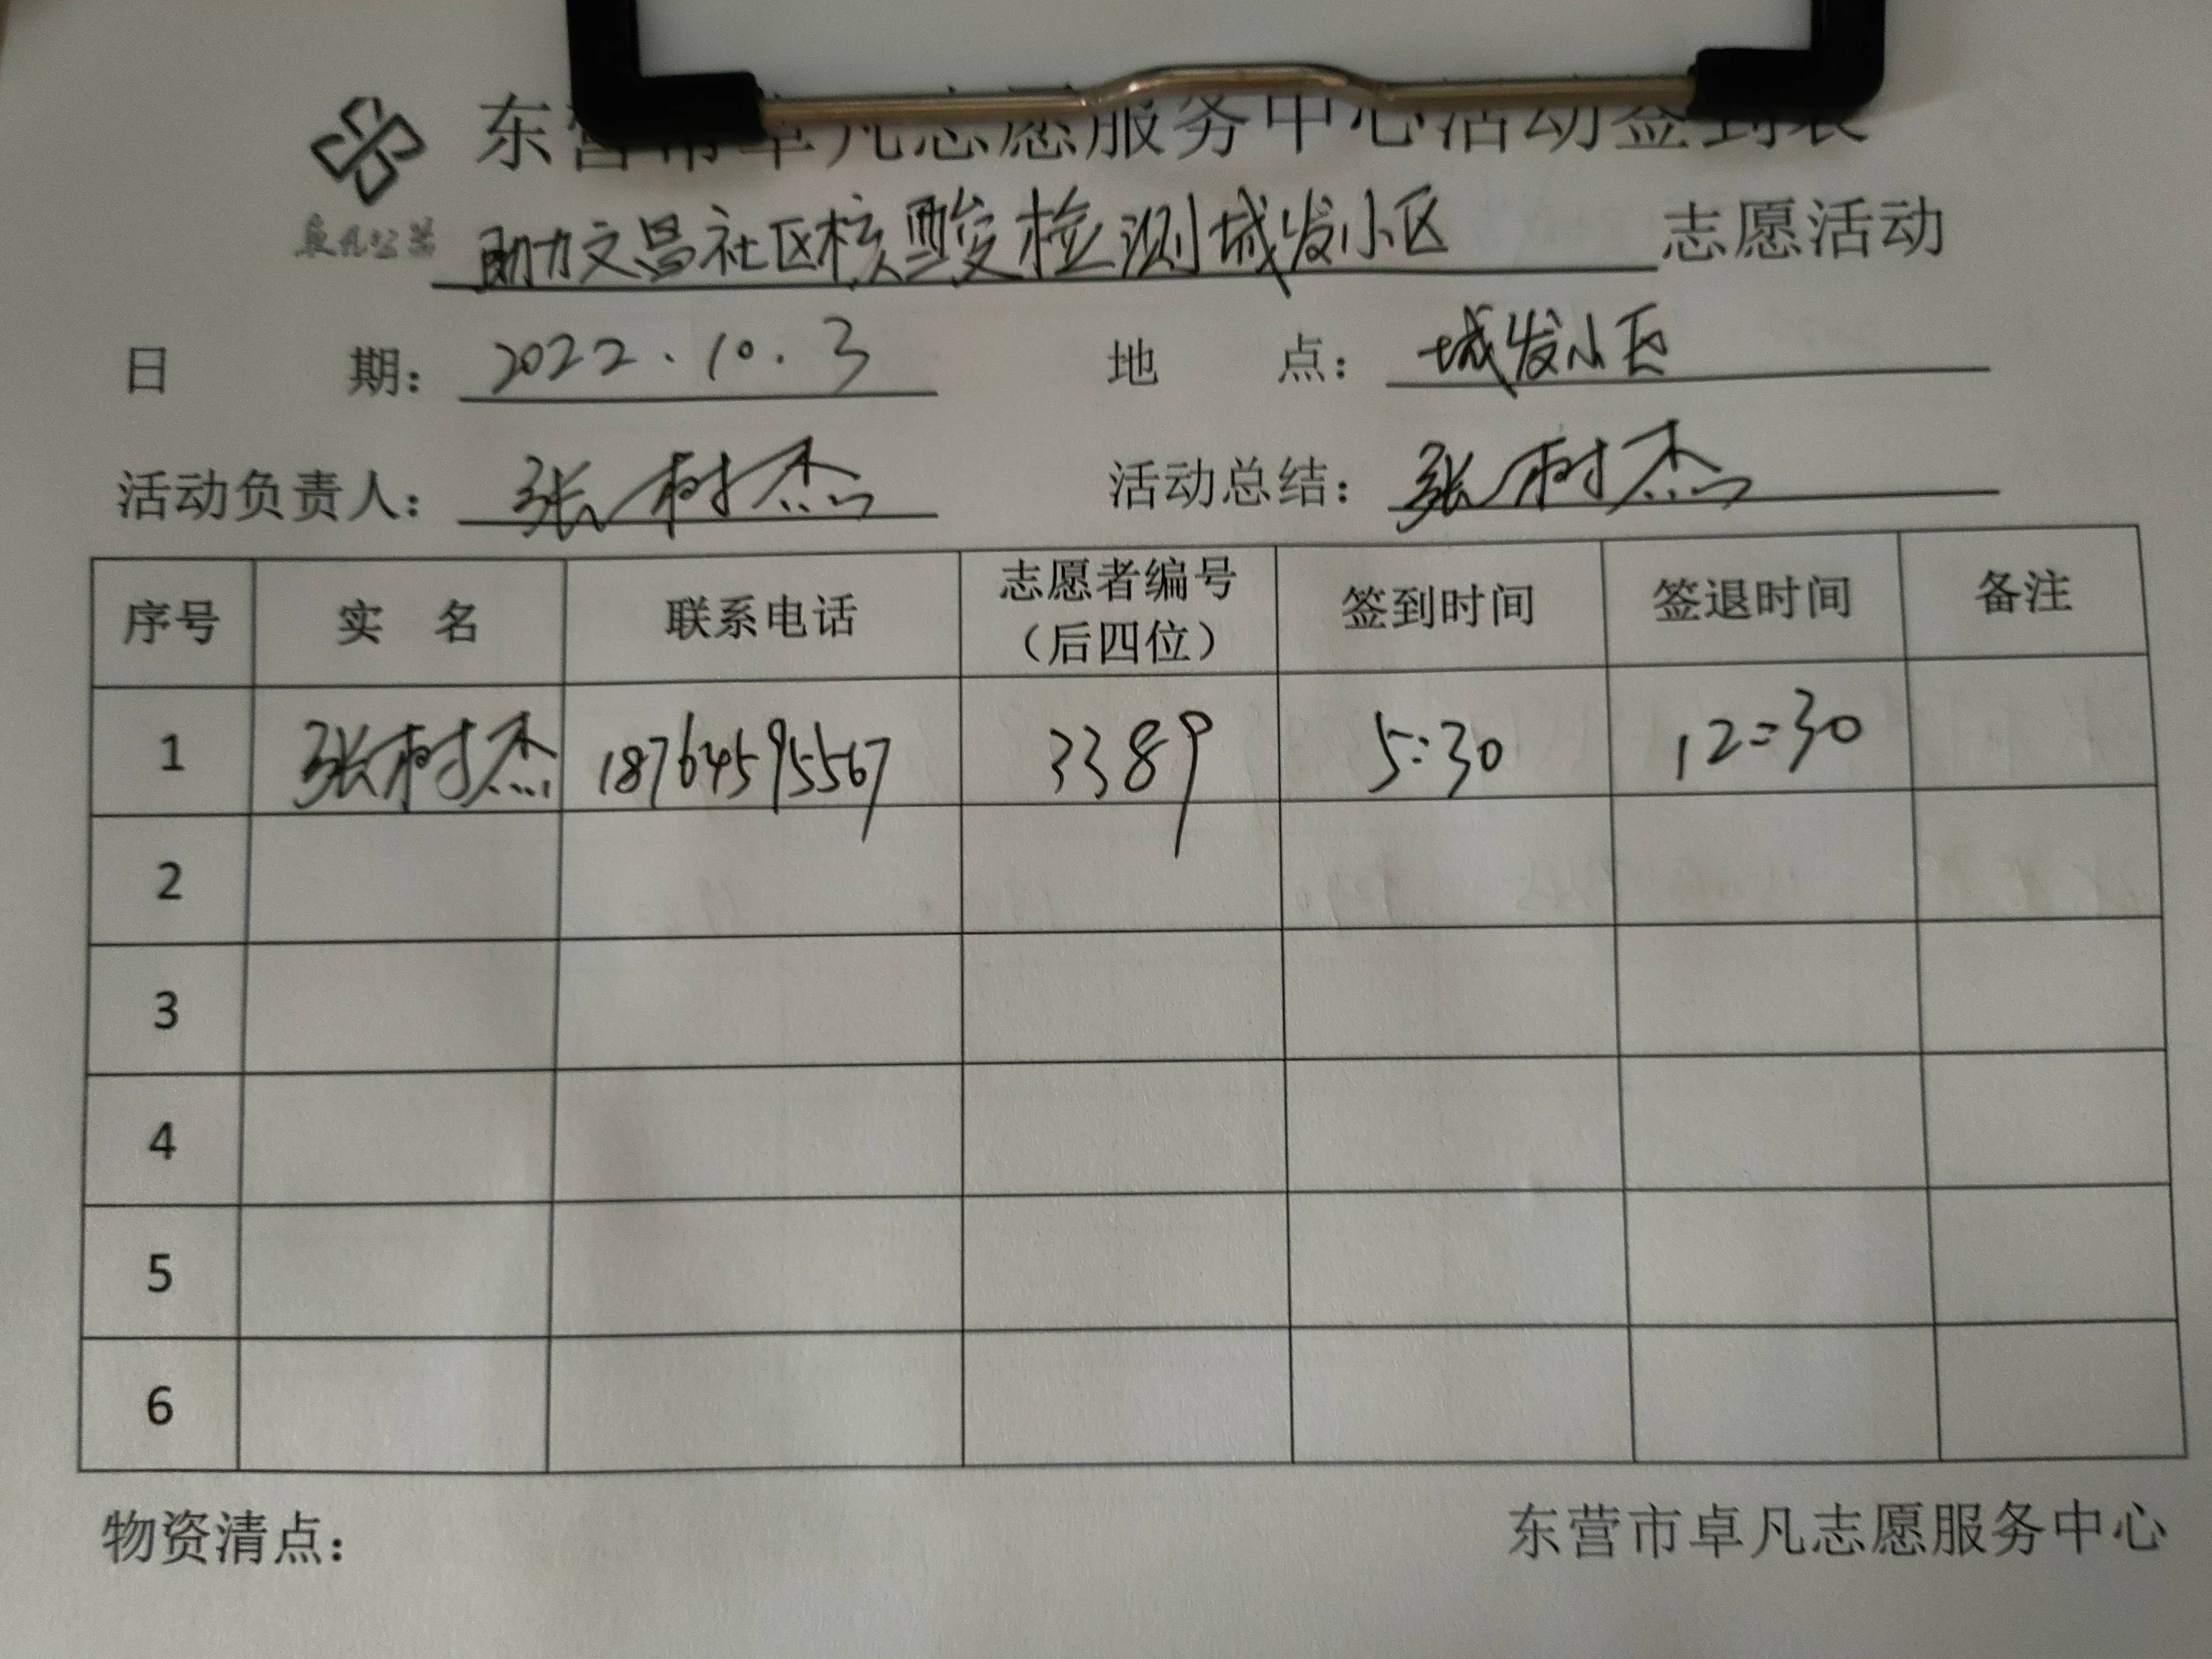 东营市卓凡志愿服务中心活动签到表
卓凡公益
助力文昌社区核酸检测城发小区 志愿活动
日 期： 2022.10.3 地 点： 城发小区
活动负责人： 张树杰 活动总结： 张树杰
序号 实 名 联系电话 志愿者编号（后四位） 签到时间 签退时间 备注
1 张树杰 18764595567 3389 5:30 12:30
2
3
4
5
6
物资清点： 东营市卓凡志愿服务中心